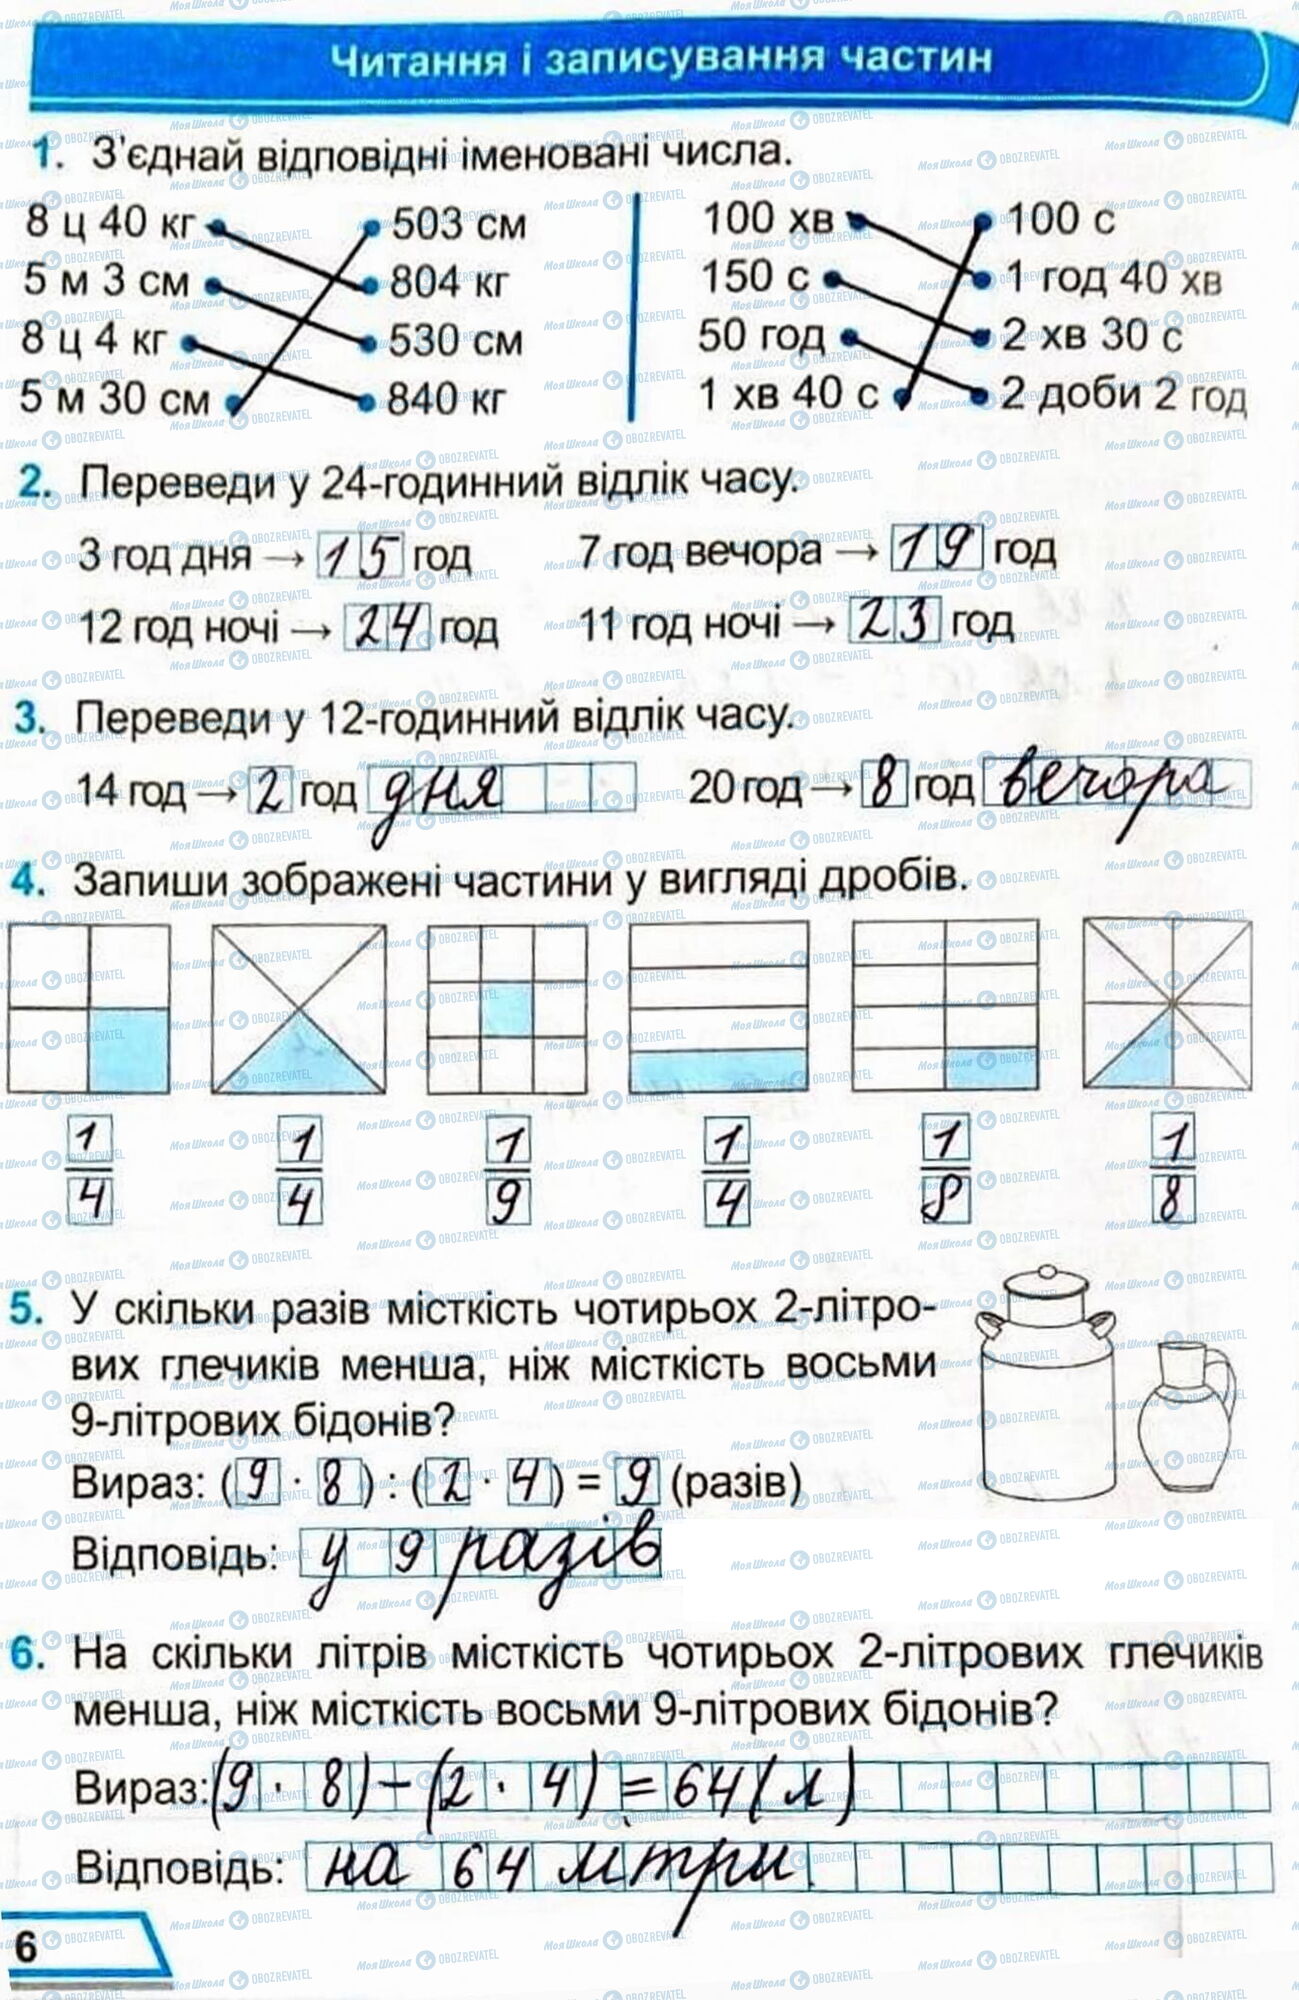 Читання і записування частин
1. З'єднай відповідні іменовані числа.
8 ц 40 кг 503 см 100 хв 100 с
5 м 3 см 804 кг 150 с 1 год 40 хв
8 ц 4 кг 530 см 50 год 2 хв 30 с
5 м 30 см 840 кг 1 хв 40 с 2 доби 2 год
2. Переведи у 24-годинний відлік часу.
3 год дня → 15 год 7 год вечора → 19 год
12 год ночі → 24 год 11 год ночі → 23 год
3. Переведи у 12-годинний відлік часу.
14 год → 2 год дня 20 год → 8 год вечора
4. Запиши зображені частини у вигляді дробів.
1 1 1 1 1 1
4 4 9 4 8 8
5. У скільки разів місткість чотирьох 2-літро-
вих глечиків менша, ніж місткість восьми
9-літрових бідонів?
Вираз: (9 · 8) : (2 · 4) = 9 (разів)
Відповідь: у 9 разів
6. На скільки літрів місткість чотирьох 2-літрових глечиків
менша, ніж місткість восьми 9-літрових бідонів?
Вираз: (9 · 8) – (2 · 4) = 64 (л)
Відповідь: на 64 літри.
6
МояШкола OBOZREVATEL